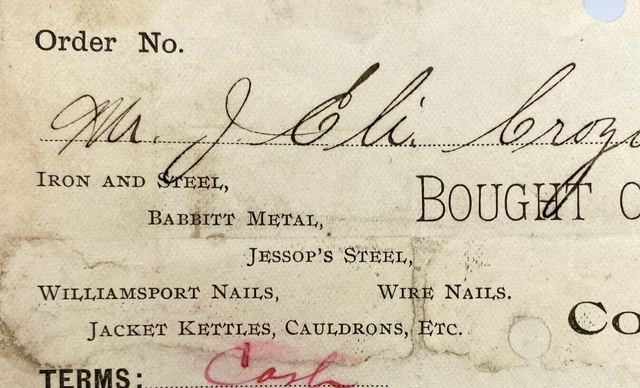 Order No.
Mr. J Eli. Croz
IRON AND STEEL,
BOUGHT O
BABBITT METAL,
JESSOP'S STEEL,
WILLIAMSPORT NAILS, WIRE NAILS.
Co
JACKET KETTLES, CAULDRONS, ETC.
TERMS: Cash